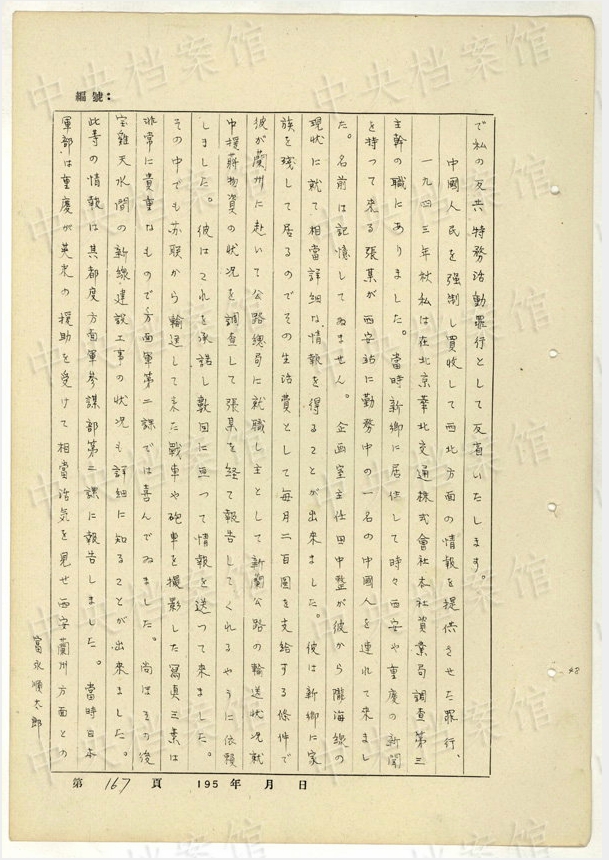 編號：
で私の反共特務活動罪行として反省いたします。
中國人民を強制し買收して西北方面の情報を提供させた罪行、
一九四三年秋私は在北京華北交通株式會社本社資業局調查第三
主幹の職にありました。當時新鄉に居住して時々西安や重慶の新聞
を持つて來る張某が西安站に勤務中の一名の中國人を連れて來まし
た。名前は記憶してゐません。企画室主任田中整が彼から隴海線の
現狀に就て相當詳細な情報を得ることが出來ました。彼は新鄉に家
族を殘して居るのでその生活費として每月二百圓を支給する條件で
彼が蘭州に赴いて公路總局に就職し主として新蘭公路の輸送狀況就
中援蔣物資の狀況を調查して張某を経て報告してくれるやうに依賴
しました。彼はこれを承諾し數回に亘つて情報を送つて來ました。
その中でも苏联から輸送して來た戰車や砲車を撮影した寫眞三葉は
非常に貴重なもので方面軍第二課では喜んでゐました。尚ほその後
宝雞天水間の新線建設工事の狀況も詳細に知ることが出來ました。
此等の情報は其都度方面軍參謀部第二課に報告しました。當時日本
軍部は重慶が英米の援助を受けて相當活気を見せ西安蘭州方面との
富永順太郎
第 167 頁 195 年 月 日
48
中央档案馆